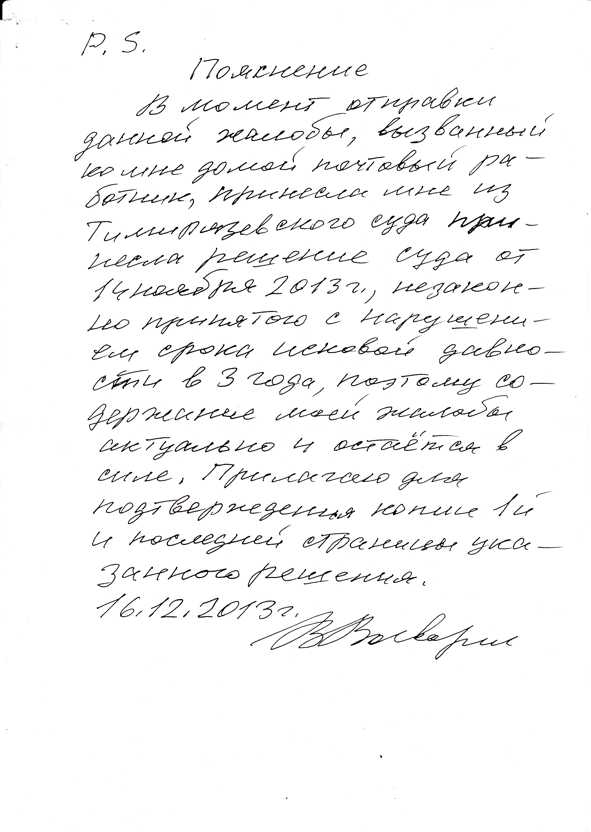 P. S.
Пояснение
В момент отправки
данной жалобы, вызванный
ко мне домой почтовый ра-
ботник, принесла мне из
Тимирязевского суда при-
несла решение суда от
14 ноября 2013г., незакон-
но принятого с нарушени-
ем срока исковой давно-
сти в 3 года, поэтому со-
держание моей жалобы
актуально и остаётся в
силе. Прилагаю для
подтверждения копии 1й
и последней страницы ука-
занного решения.
16.12.2013г.